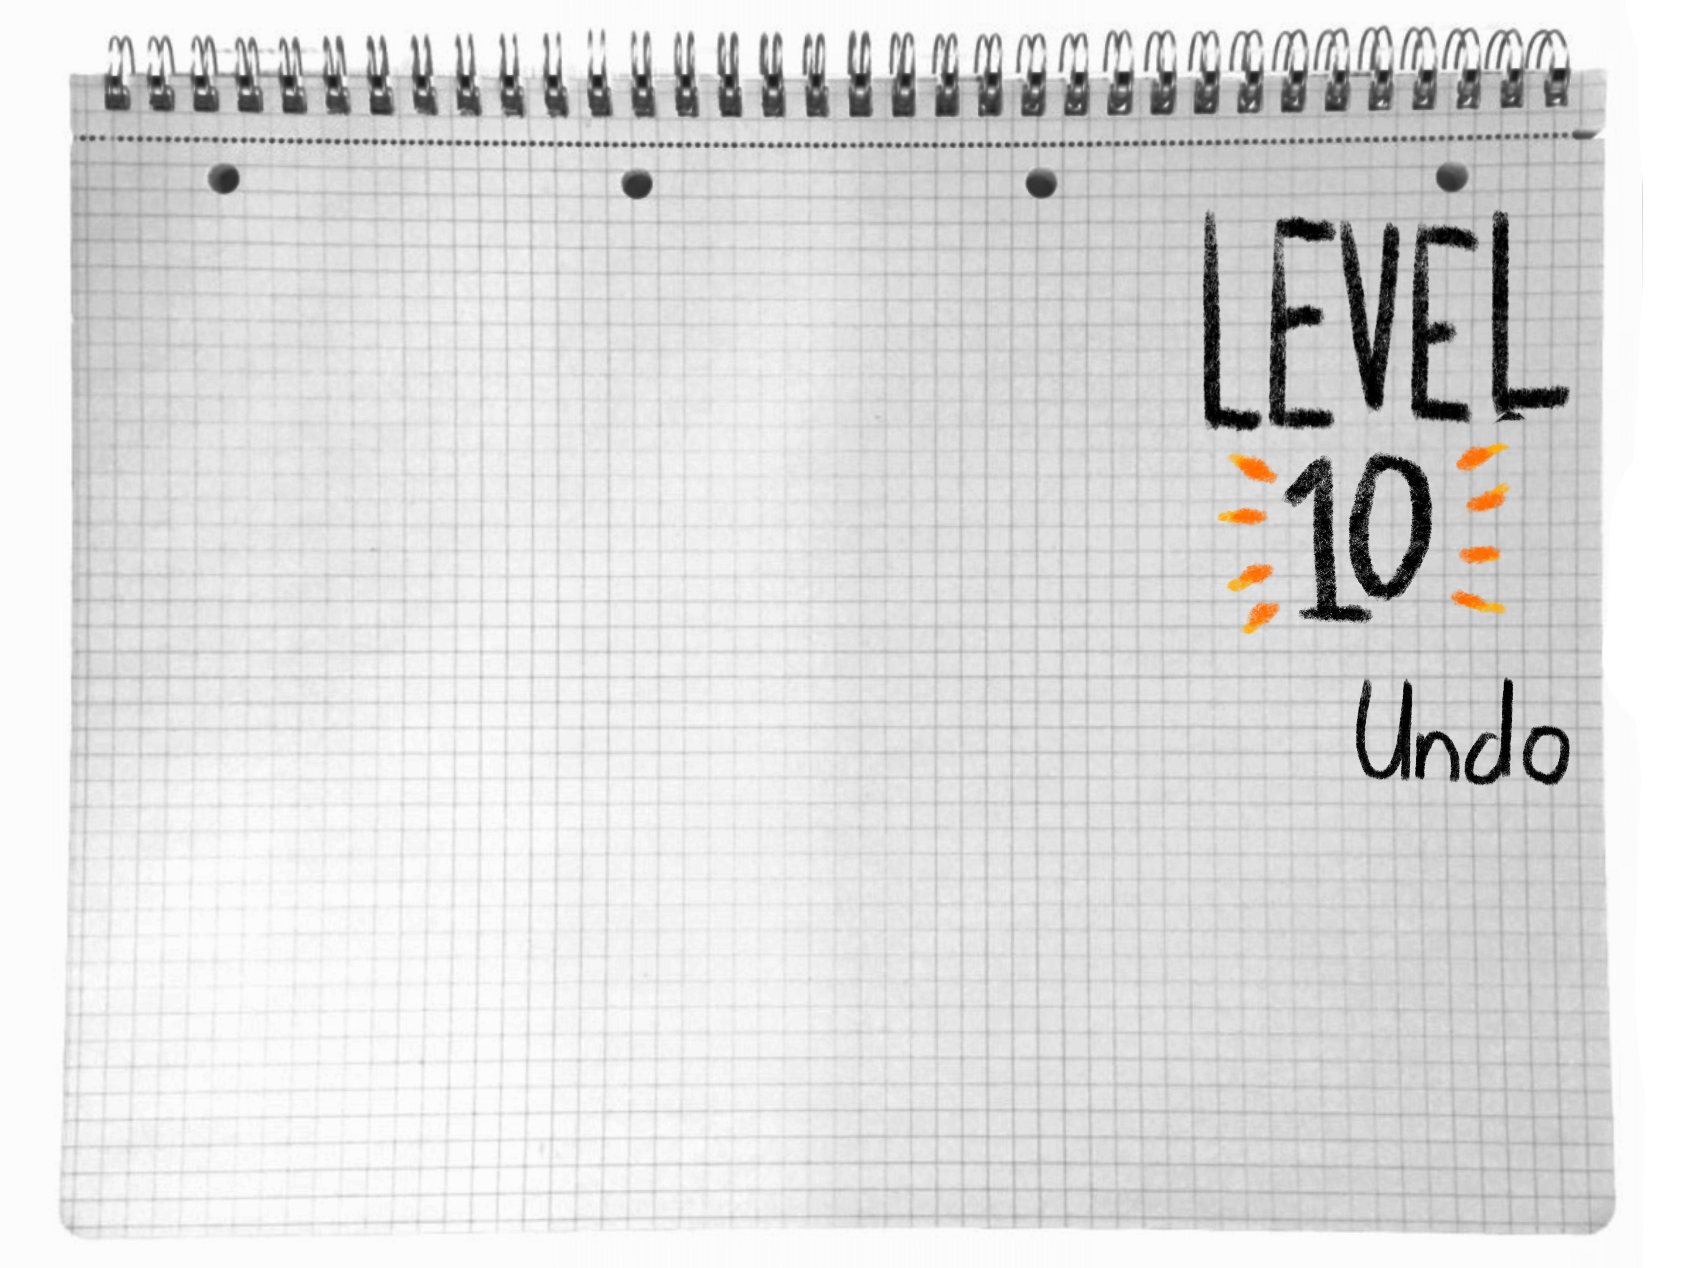 LEVEL
10
Undo